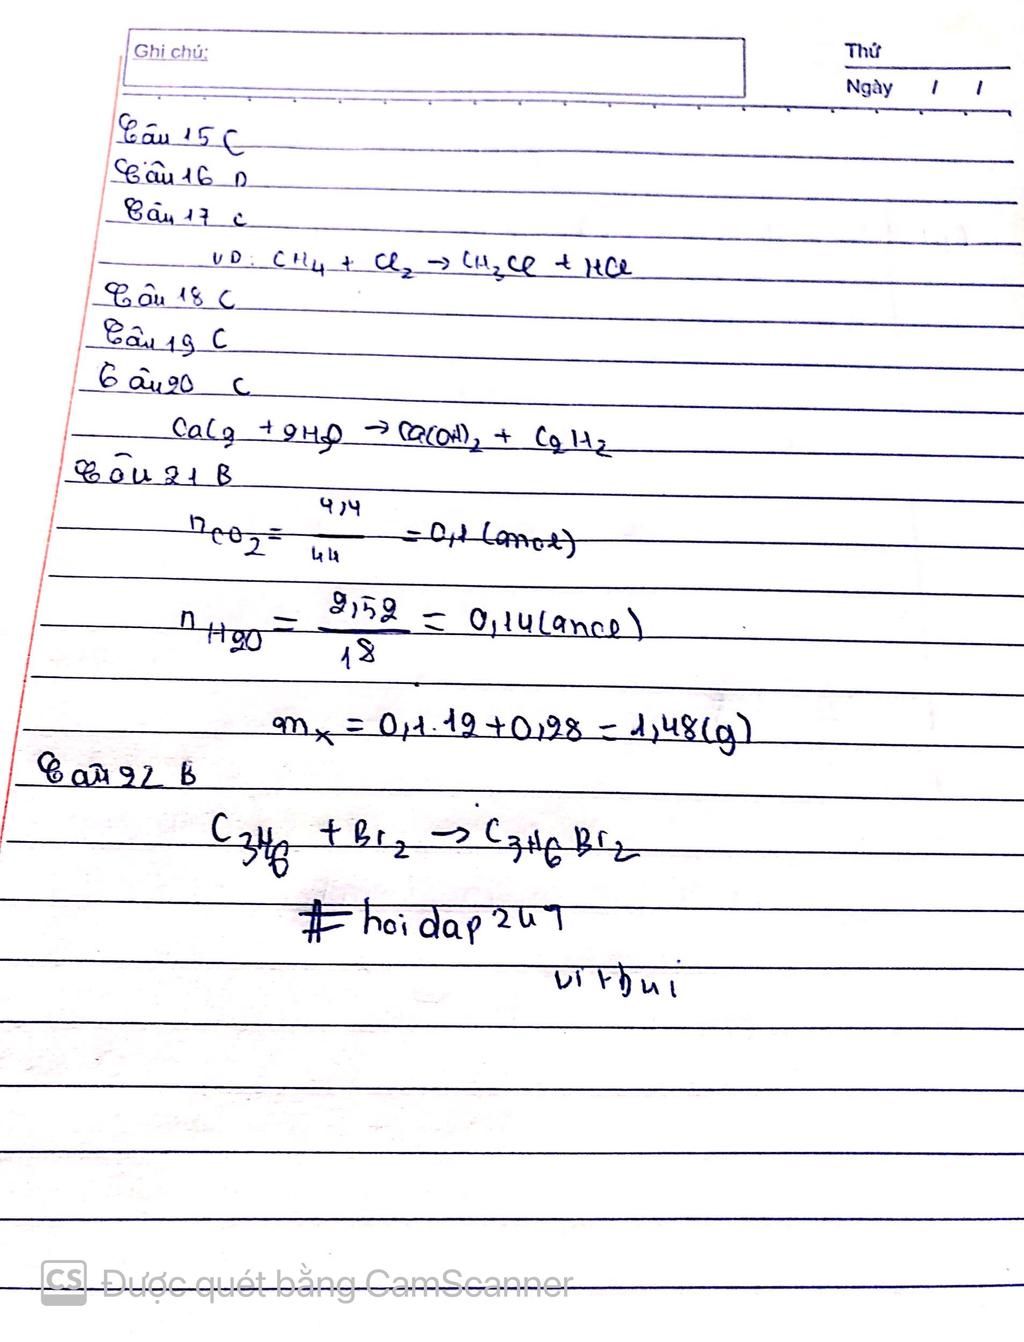 Ghi chú:
Thứ
Ngày / /
Câu 15 C
Câu 16 D
Câu 17 C
VD: CH4 + Cl2 → CH3Cl + HCl
Câu 18 C
Câu 19 C
Câu 20 C
CaC2 + 2H2O → Ca(OH)2 + C2H2
Câu 21 B
nCO2 = 4,4/44 = 0,1 (mol)
nH2O = 2,52/18 = 0,14 (mol)
mx = 0,1.12 + 0,28 = 1,48 (g)
Câu 22 B
C3H6 + Br2 → C3H6Br2
# hoidap247
vitbui
CS Được quét bằng CamScanner